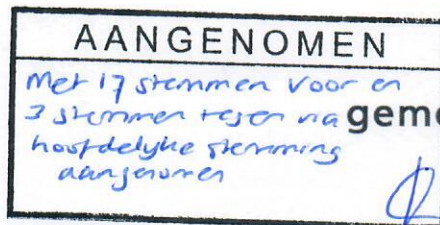 AANGENOMEN
Met 17 stemmen voor en
3 stemmen tegen na geme
hoofdelijke stemming
aangenomen